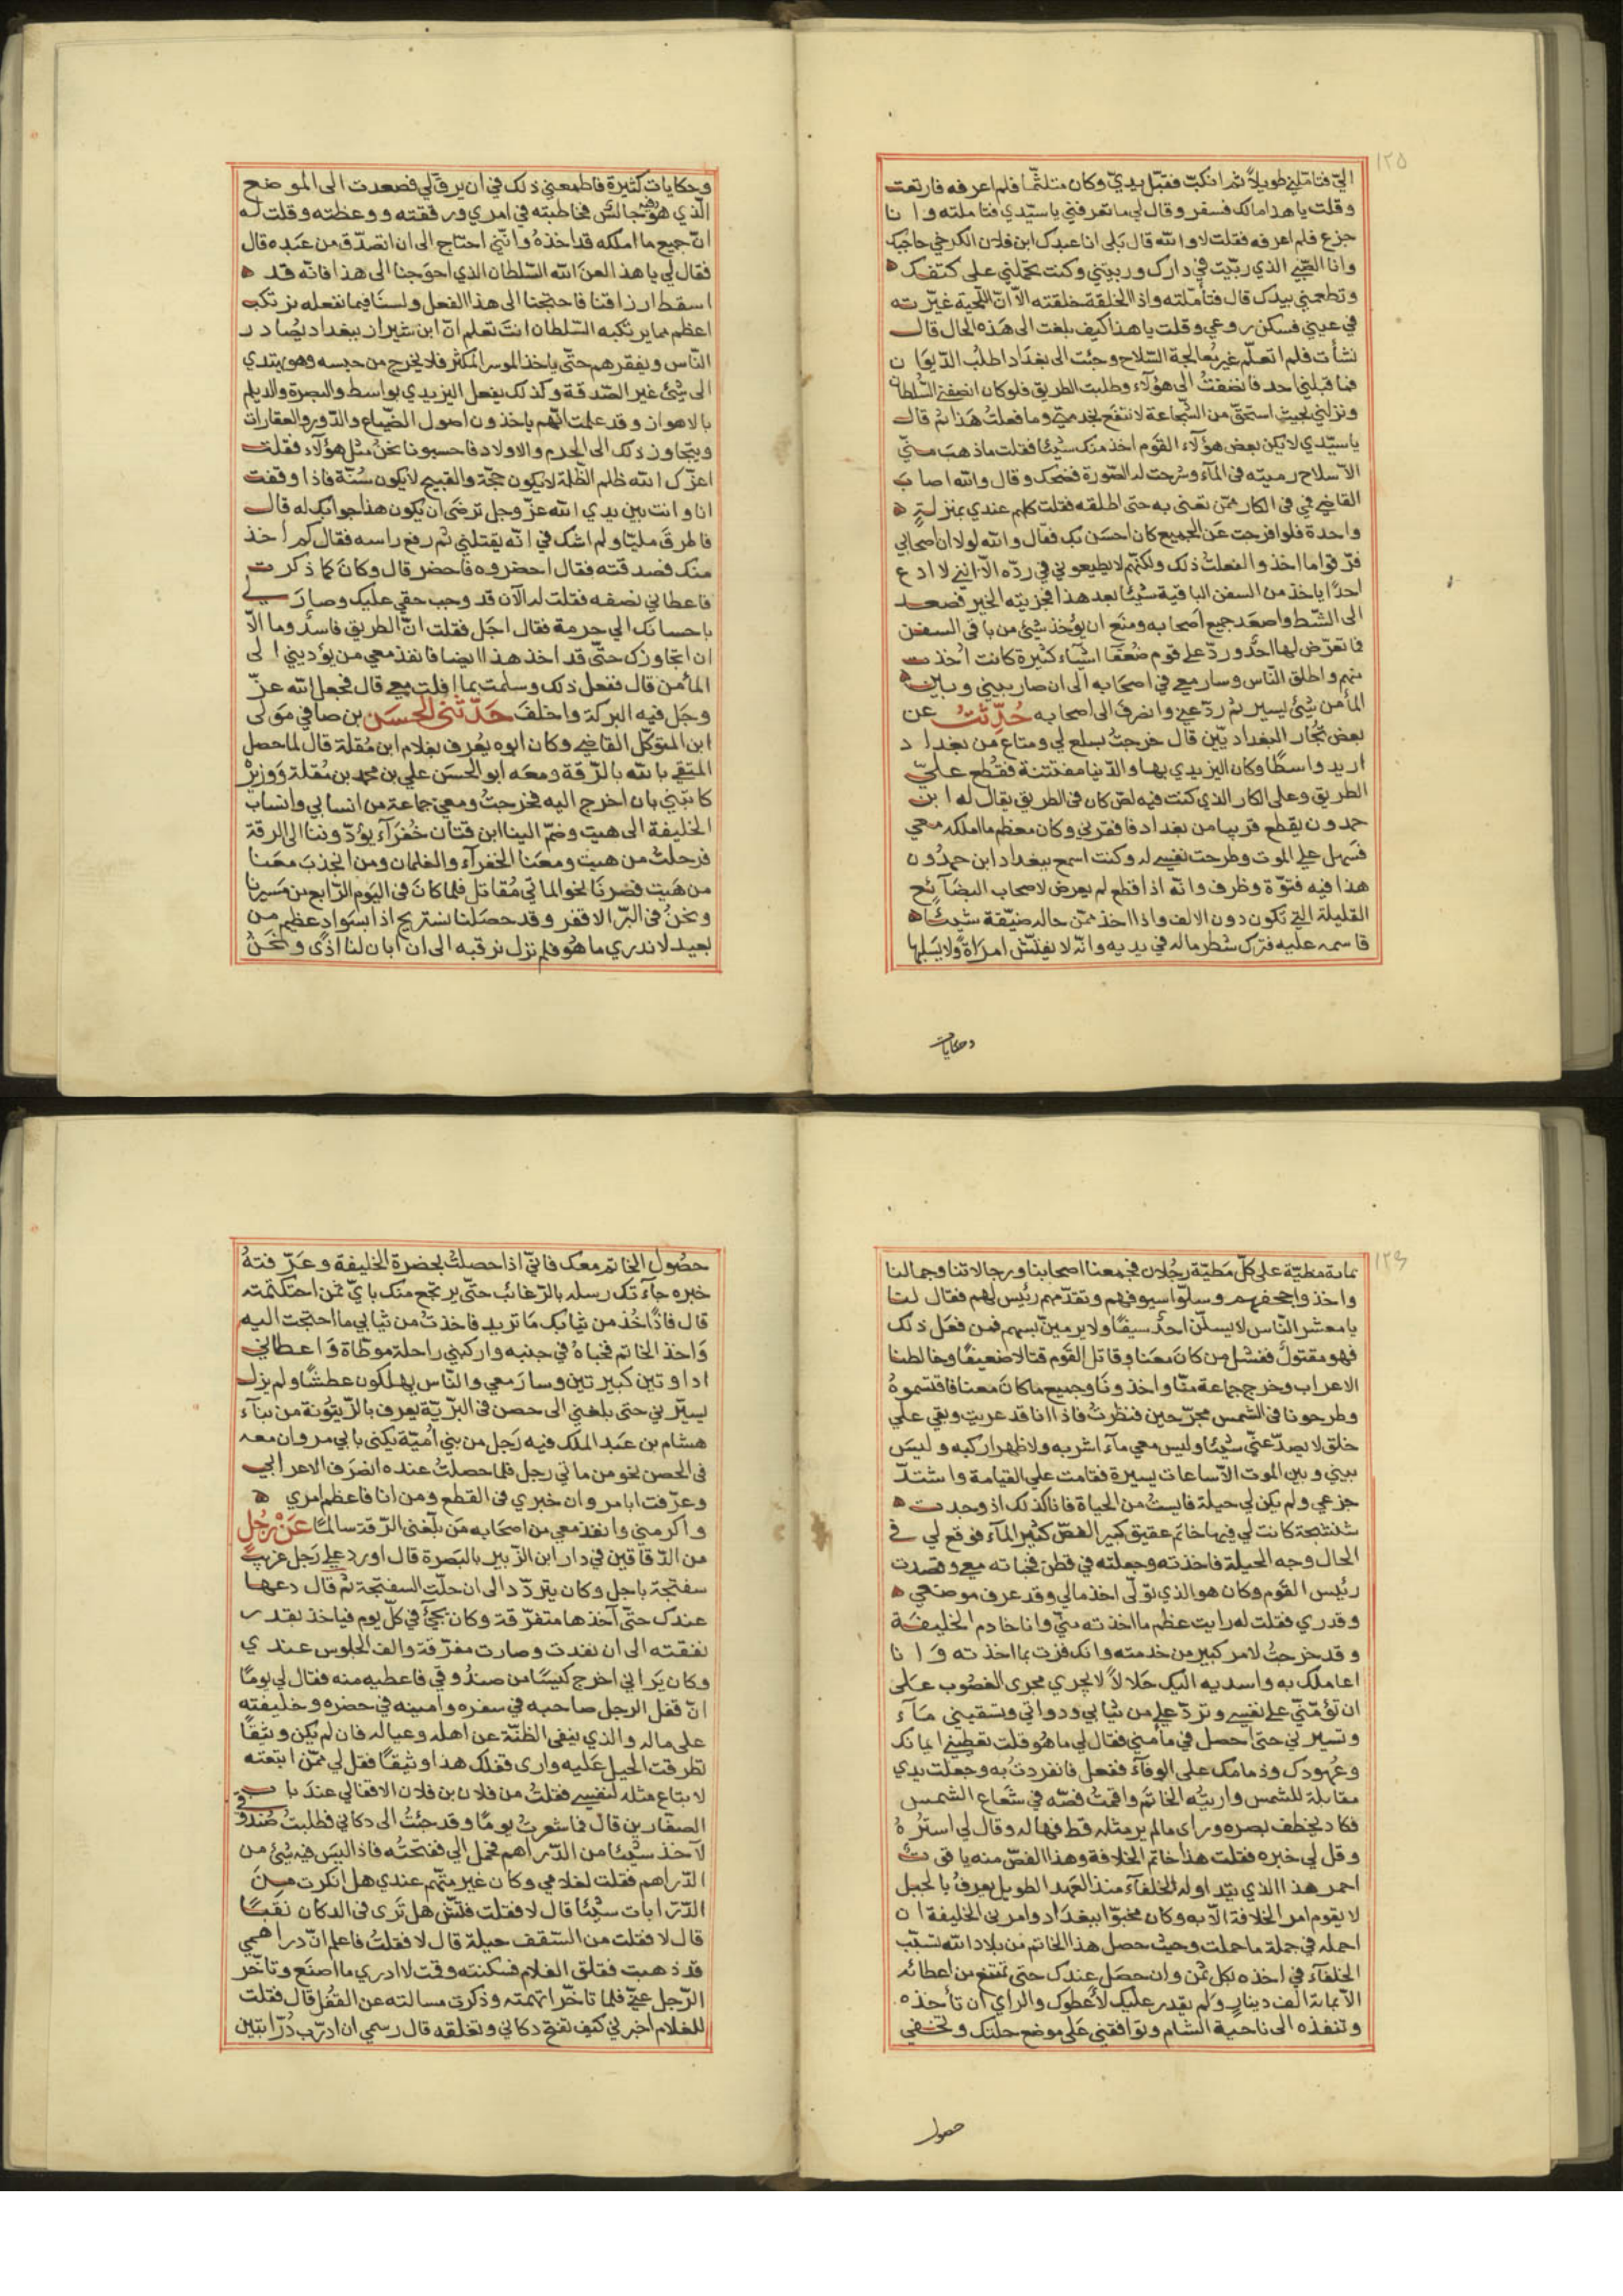 ١٢٥
اليّ فتامّلني طويلاً ثم انكبّ فقبّل يديّ وكان متلثّما فلم اعرفه فارتعت
وقلت يا هذا مالك فسفر وقال لي ما تعرفني يا سيّدي فتاملته وانا
جزع فلم اعرفه فقلت لا والله قال بَلى انا عبدك ابن فلان الكرخي حاجبك
وانا الصّبي الذي ربّيت في دارك وربيتني وكنت تحملني على كتفك
وتطعمني بيدك قال فتأمّلته واذا الخلقة خلقته الّا انّ اللّحية غيّرته
في عيني فسكن روعي وقلت يا هذا كيف بلغت الى هَذه الحال قال
نشأت فلم اتعلّم غير مُعالجة السّلاح وجئت الى بغدَاد اطلبُ الدّيوَان
فما قبلني احد فانضفتُ الى هؤلاء وطلبت الطريق فلو كان انصفني السُّلطان
ونزلني بحيث استحقّ من الشّجاعة لانتفَع بخدمتي وما فعلتُ هَذا ثم قال
يا سيّدي لا يكن بعض هؤلاء القوَم اخذ منك شيئا فقلت ما ذهَبَ منّي
الّا سلاح رميته في المآء وشرحت له الصّورة فضحك وقال والله اصاب
القاضي فمن في الكار ممّن تعنى به حتى اطلقه فقلت كلهم عندي بمنزلة
واحدة فلو افرجت عَن الجميع كان احسَن بك فقال والله لولا ان اصحابي
فرّقوا ما اخذوا لفعلتُ ذلك ولكنّهم لا يطيعوني في ردّه الّا انني لا ادع
احدًا ياخذ من السفن الباقية شيئًا بعد هذا فجزيته الخير فصعد
الى الشّط واصعَد جميع اَصحابه ومنَع ان يُؤخذ شيئ من باقي السفن
فما تعرّض لها احدٌ وردّ على قوم ضُعَفَا اشيَاء كثيرة كانت اُخذت
منهم واطلق النّاس وسار معي في اصحَابه الى ان صار بيني وبين
المأمن شيئ يسير ثم ردّ عني وانصرفَ الى اصحابه حُدّثتُ عن
بعض تجّار البغداديّين قال خرجتُ بسلع لي ومتاع من بغداد
اريد واسطًا وكان اليزيدي بها والدّنيا مفتتنة فقُطع عليّ
الطريق وعلى الكار الذي كنت فيه لصّ كان في الطريق يقال له ابن
حمدون يقطع قريبا من بغداد فافقرني وكان معظم ما املكه معي
فسَهل عليّ الموت وطرحت نفسي له وكنت اسمع ببغداد ابن حمدُون
هذا فيه فتوّة وظرف وانّه اذا قطع لم يعرض لاصحاب البضآئع
القليلة التي تكون دون الالف واذا اخذ ممّن حاله ضيّقة شيئًا
قاسمه عليه فترك شطر ماله في يديه وانّه لا يفتّش امرَاةً ولا يَسلبها
وحكايات
وحكايات كثيرة فاطمعني ذلك في ان يرقّ لي فصعدت الى الموضع
الّذي هوَ فيه جالسٌ فخاطبته في امري ورققته ووعظته وقلت له
انّ جميع ما املكه قد اخذهُ وانّني احتاج الى ان اتصدّق من عَبَده قال
فقال لي يا هذا لعنَ الله السّلطان الذي احوَجنا الى هذا فانّه قد
اسقط ارزاقنا فاحتجنا الى هذا الفعل ولسنَا فيما نفعله نرتكب
اعظم مما يرتكبه السّلطان انتَ تعلم انّ ابن شيراز ببغداد يُصادر
النّاس ويفقرهم حتّى ياخذ الموسر المكثر فلا يخرج من حبسه وهو يهتدي
الى شيئ غير الصّدقة وكذلك يفعل البزيدي بواسط والبصرة والديلم
بالاهواز وقد علمت انّهم ياخذون اصول الضّياع والدّور والعقارات
ويتجاوز ذلك الى الحرم والاولاد فاحسبونا نحنُ مثل هؤلآء فقلت
اعزّك الله ظلم الظّلمة لا يكون حجّة والقبيح لا يكون سُنّة فاذا وقفت
انا وانت بين يدي الله عزّ وجل ترضَى ان يكون هذا جوابك له قال
فاطرقَ مليّا ولم اشك في انّه يقتلني ثم رفع راسه فقال كم اُخذ
منك فصدقته فقال احضروه فاحضر قال وكانَ كما ذكرت
فاعطاني نصفه فقلت له الآن قد وجب حقي عليك وصارَ لي
باحسانك اليّ حرمة فقال اجَل فقلت انّ الطريق فاسدٌ وما الّا
ان اتجاوزك حتّى قد اخذ هذا ايضا فانفذ معي من يؤديني الى
المأمن قال ففعل ذلك وسلمت بما افلت معي قال فجعل الله عزّ
وجَل فيه البركة واخلفَ حَدّثَني الحسَن بن صافي مَولى
ابن المتوكّل القاضي وكان ابوه يُعرف بغلام ابن مُقلة قال لما حصل
المتقي بالله بالرّقة ومعَه ابو الحسَن علي بن محمد بن مُقلة وَوزيرٌ
كاتبَني بان اخرج اليه فخرجتُ ومعي جماعة من انسابي وانساب
الخليفة الى هيت وضمّ الينا ابن قتّان خُفَرَآء يؤدّوننا الى الرقة
فرحلتُ من هيت ومعَنا الخفرآء والغلمان ومن انجذبَ معَنا
من هَيت فصرنَا نحو المائتي مُقاتل فلمّا كانَ في اليَوم الرّابع من مَسيرنا
ونحنُ في البَرّ الاقفر وقد حصَلنا نستريح اذا بسَوادٍ عظيم من
بعيد لا ندري ما هُو فلم نزل نرقبه الى ان ابان لنا اذى ونحَنُ
١٢٦
مائة مطيّة على كلّ مَطيّة رجُلان فجمعنا اصحابنا ورجالاتنا وجمالنا
واخذوا جحفهم وسلّوا سيوفهم وتقدّمهم رئيس لهم فقال لنا
يا معشر النّاس لا يسلّنّ احدٌ سيفًا ولا يرمينّ بسهم فمن فعَل ذلك
فهو مقتولٌ ففشل من كانَ معَنا وقاتل القَوم قتالا ضعيفًا وخالطنا
الاعراب وخرج جماعة منّا واخذونَا وجميع ما كانَ معنا فاقتسموهُ
وطرحونا في الشمس مجرّحين فنظرتُ فاذا انا قد عريت وبقي علي
خلق لا يصدّ عنّي شيئًا وليس معي مآء اشربه ولا ظهر اركبه وليسَ
بيني وبين الموت الّا ساعات يسيرة فقامت علي القيامة واشتدّ
جزعي ولم يكن لي حيلة فايستُ من الحياة فانا كذلك اذ وجدت
شنتجة كانت لي فيها خاتم عقيق كبير الفصّ كثير المآء فوقع لي في
الحال وجه الحيلة فاخذته وجعلته في قطن فخباته معي وقصدت
رئيس القَوم وكان هو الذي تولّى اخذ مالي وقد عرف موضعي
وقدري فقلت له رايت عظم ما اخذته منّي وانا خادم الخليفَة
وقد خرجتُ لامر كبير من خدمته وانك فزت بما اخذته وَانا
اعاملك به واسديه اليك حَلالاً لا يجري مجرى الغصُوب عَلى
ان تؤمّنّي على نفسي وتردّ علي من ثيابي ودواتي وتسقيني مَآء
وتسيرني حتى احصل في مأمني فقال لي ما هُو قلت تعطيني ايمانك
وعهودك وذمامك على الوفآء ففعل فانفردتُ به وجعلت يدي
مقابلة للشمس واريتُه الخاتَم واقمتُ فصّه في شعَاع الشمس
فكاد يخطف بصره وراى ما لم ير مثله قط فهاله وقال لي استرُهُ
وقل لي خبره فقلت هذا خاتم الخلافة وهذا الفصّ منه ياقوتٌ
احمر هذا الذي يتداوله الخلفآء منذ العهد الطويل يعرفُ بالجبل
لا يقوم امر الخلافة الّا به وكان مخبوّا ببغدَاد وامرني الخليفة ان
احمله في جملة ما حملت وحيث حصل هذا الخاتم من بلاد الله تسبّب
الخلفآء في اخذه بكل ثمن وان حصَل عندك حتى تمتنع من اعطائه
الّا بمائة الف دينارٍ وَلم يقدر عليك لأعطوك والراي ان تأخذه
وتنفذه الى ناحية الشام وتوافقني عَلى موضع حلتك وتخفي
حصول
حصُول الخاتم معك فانّي اذا حصلتُ بحضرة الخليفة وعَرّفتهُ
خبره جآءتك رسله بالرّغائب حتّى يرتجع منك بايّ ثمن احتكمته
قال فاذًا خُذ من ثيابك مَا تريد فاخذتُ من ثيابي ما احتجت اليه
وَاخذ الخاتم فخباهُ في جنبه واركبني راحلة موطّاة وَاعطاني
اداوتين كبيرتين وسارَ معي والنّاس يهلكون عطشًا ولم يزل
يسيّرني حتى بلغني الى حصن في البرّيّة يعرف بالزّيتُونة من بنآء
هشام بن عَبد الملك فيه رَجل من بني اُميّة يكنى بابي مروان معه
في الحصن نحو من مائتي رجل فلما حصلتُ عنده انصَرَف الاعرابي
وعرّفت ابا مروان خبري في القطع ومن انا فاعظم امري
واكرمني وانفذ معي من اصحَابه مَن بلّغني الرّقة سالمًا عَنْ رَجُلٍ
من الدّقاقين في دار ابن الزّبير بالبَصرة قال اورد علي رَجل غريبٌ
سفتجة باجل وكان يتردّد الى ان حلّت السفتجة ثم قال دعها
عندك حتّى آخذها متفرّقة وكان يجيئُ في كلّ يوم فياخذ بقدر
نفقته الى ان نفدت وصارت مفرّقة والف الجلوس عندي
وكان يَراني اخرج كيسًا من صندُوقي فاعطيه منه فقال لي يومًا
انّ قفل الرجل صاحبه في سفره وامينه في حضره وخليفته
على ماله والذي ينفي الظنّة عن اهله وعياله فان لم يكن وثيقًا
تطرقت الحيل عَليه وارى قفلك هذا وثيقًا فقل لي ممّن ابتعته
لابتاع مثله لنفسي فقلتُ من فلان بن فلان الاقفالي عندَ باب
الصفّارين قال فما شعرتُ يومًا وقد جئتُ الى دكاني فطلبتُ صُندُوق
لآخذ شيئا من الدّراهم فحمل الي ففتحتُه فاذا ليسَ فيه شيئ من
الدّراهم فقلت لغلامي وكان غير متّهم عندي هل انكرت من
الدّرابات شيئًا قال لا فقلت فتّش هل تَرى في الدكان نقبًا
قال لا فقلت من السّقف حيلة قال لا فقلتُ فاعلم انّ دراهمي
قد ذهبت فقلق الغلام فسكنته وقمت لا ادري ما اصنَع وتاخّر
الرّجل عنّي فلما تاخّر اتهمته وذكرت مسالته عن القفُل قال فقلت
للغلام اخبرني كيف تفتح دكاني وتغلقه قال رسمي ان ادرّب دُرّابتين